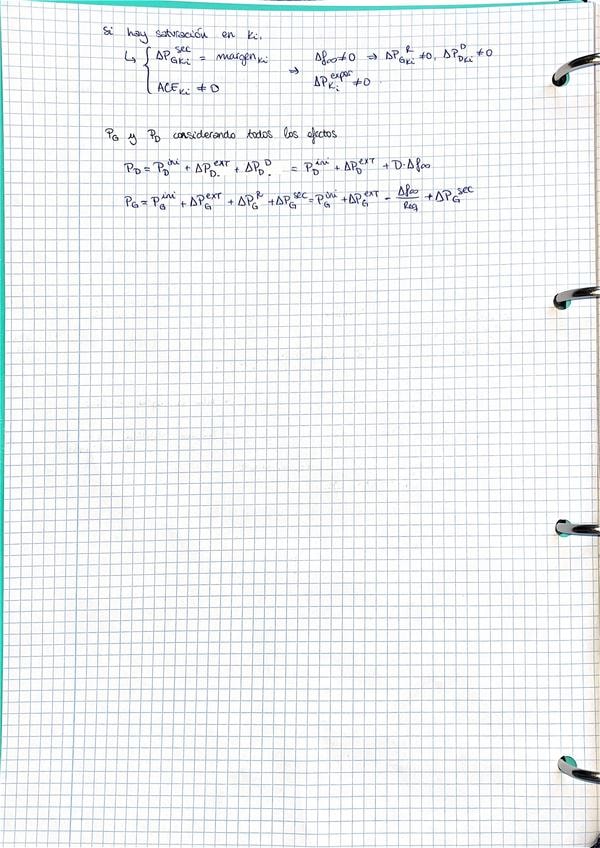 Si hay saturación en Ki.
↳ { ΔP_GKi^sec = margen_Ki ⇒ Δf∞≠0 ⇒ ΔP_GKi^R ≠0, ΔP_DKi^D ≠0
ACE_Ki ≠ 0 ΔP_Ki^expor ≠0.
P_G y P_D considerando todos los efectos
P_D = P_D^ini + ΔP_D^ext + ΔP_D^D = P_D^ini + ΔP_D^ext + D·Δf∞
P_G = P_G^ini + ΔP_G^ext + ΔP_G^R + ΔP_G^sec = P_G^ini + ΔP_G^ext - Δf∞/Req + ΔP_G^sec